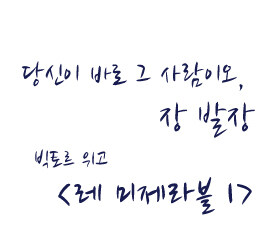 당신이 바로 그 사람이오,
장 발장
빅토르 위고
<레 미제라블 1>